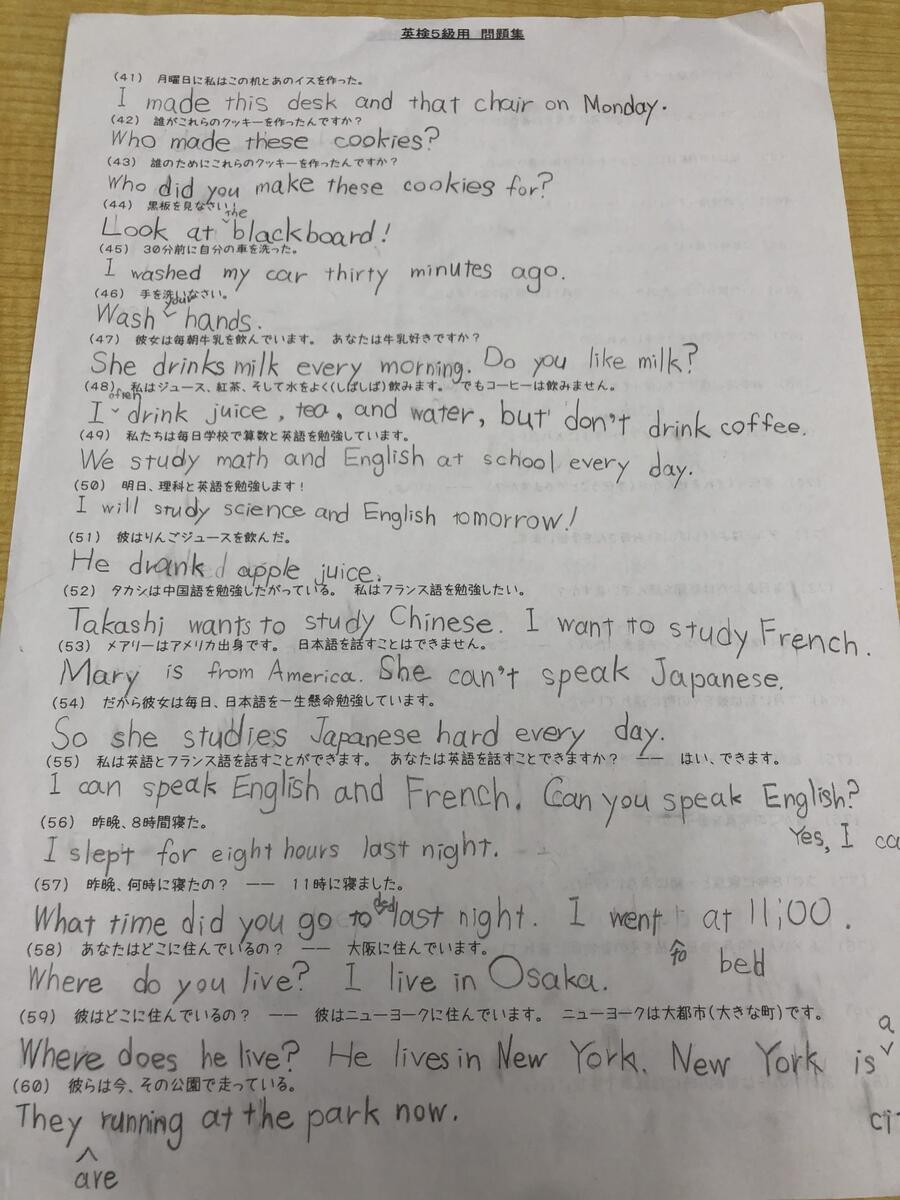 英検5級用 問題集
(41) 月曜日に私はこの机とあのイスを作った。
I made this desk and that chair on Monday.
(42) 誰がこれらのクッキーを作ったんですか?
Who made these cookies?
(43) 誰のためにこれらのクッキーを作ったんですか?
Who did you make these cookies for?
(44) 黒板を見なさい!
Look at the blackboard!
(45) 30分前に自分の車を洗った。
I washed my car thirty minutes ago.
(46) 手を洗いなさい。
Wash your hands.
(47) 彼女は毎朝牛乳を飲んでいます。 あなたは牛乳好きですか?
She drinks milk every morning. Do you like milk?
(48) 私はジュース、紅茶、そして水をよく(しばしば)飲みます。 でもコーヒーは飲みません。
I often drink juice, tea, and water, but don't drink coffee.
(49) 私たちは毎日学校で算数と英語を勉強しています。
We study math and English at school every day.
(50) 明日、理科と英語を勉強します!
I will study science and English tomorrow!
(51) 彼はりんごジュースを飲んだ。
He drank apple juice.
(52) タカシは中国語を勉強したがっている。 私はフランス語を勉強したい。
Takashi wants to study Chinese. I want to study French.
(53) メアリーはアメリカ出身です。 日本語を話すことはできません。
Mary is from America. She can't speak Japanese.
(54) だから彼女は毎日、日本語を一生懸命勉強しています。
So she studies Japanese hard every day.
(55) 私は英語とフランス語を話すことができます。 あなたは英語を話すことできますか? —— はい、できます。
I can speak English and French. Can you speak English?
Yes, I ca
(56) 昨晩、8時間寝た。
I slept for eight hours last night.
(57) 昨晩、何時に寝たの? —— 11時に寝ました。
What time did you go to bed last night. I went to bed at 11:00.
(58) あなたはどこに住んでいるの? —— 大阪に住んでいます。
Where do you live? I live in Osaka.
(59) 彼はどこに住んでいるの? —— 彼はニューヨークに住んでいます。 ニューヨークは大都市(大きな町)です。
Where does he live? He lives in New York. New York is a
(60) 彼らは今、その公園で走っている。
They are running at the park now.